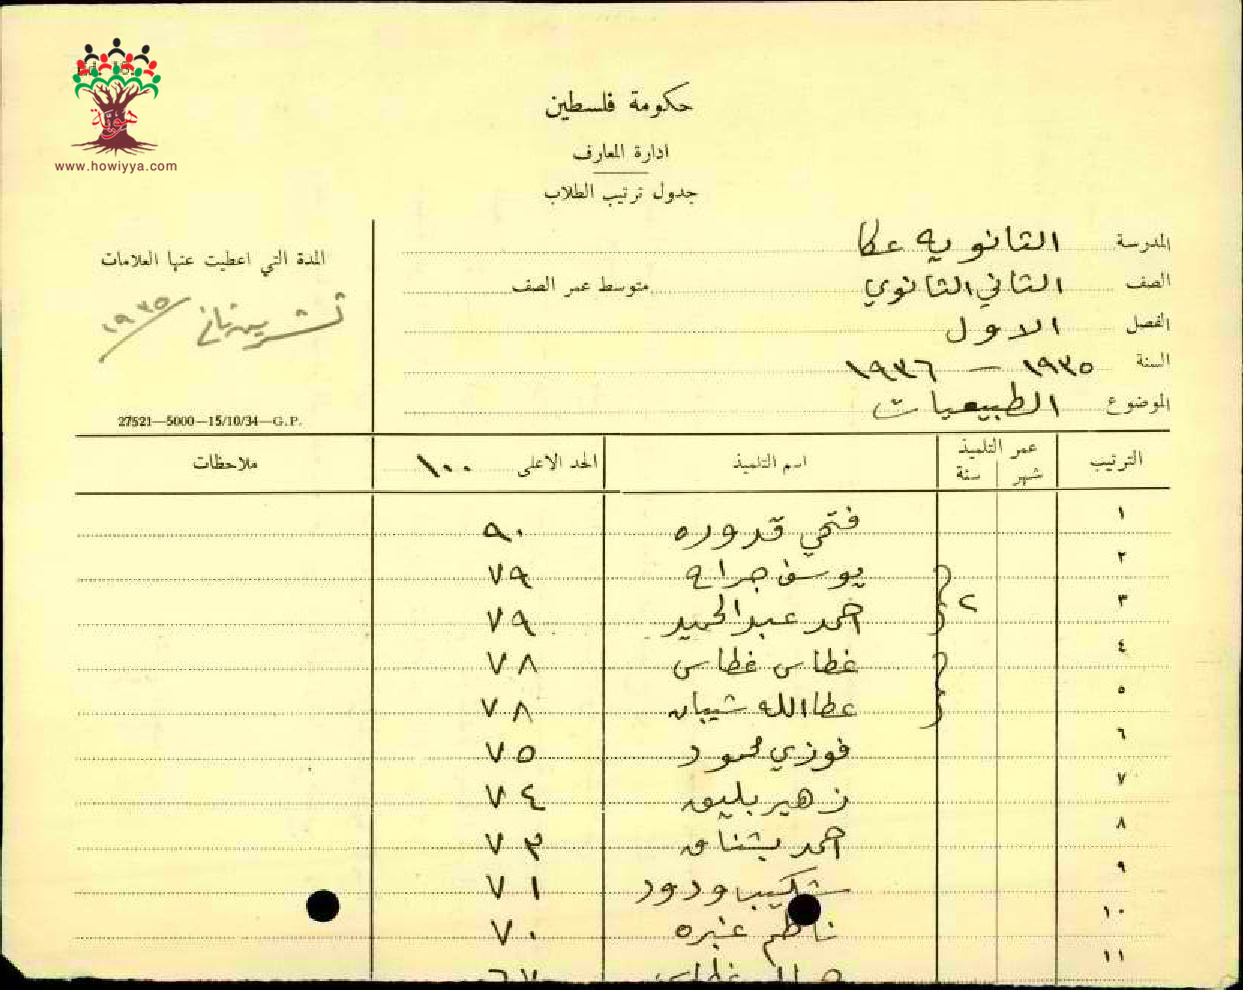 هوية
www.howiyya.com
حكومة فلسطين
ادارة المعارف
جدول ترتيب الطلاب
المدرسة الثانويه عكا
الصف الثاني الثانوي متوسط عمر الصف
الفصل الاول
السنة ١٩٣٥ — ١٩٣٦
الموضوع الطبيعيات
المدة التي اعطيت عنها العلامات
تشرين ثاني ١٩٣٥
27521—5000—15/10/34—G.P.
الترتيب عمر التلميذ شهر سنة اسم التلميذ الحد الاعلى ١٠٠ ملاحظات
١ فتحي قدوره ٩٠
٢ يوسف جراح ٧٩
٣ احمد عبد الحميد ٧٩
٢
٤ غطاس غطاس ٧٨
٥ عطاالله شيبان ٧٨
٦ فوزي محمود ٧٥
٧ زهير بليق ٧٤
٨ احمد بشناق ٧٣
٩ شكيب ودود ٧١
١٠ ناظم عنبره ٧٠
١١ غطاس ٦٧